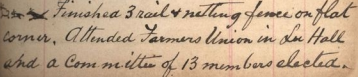 Finished 3 rail & netting fence on flat
corner. Attended Farmers Union in Hall
and a Committee of 13 members elected.